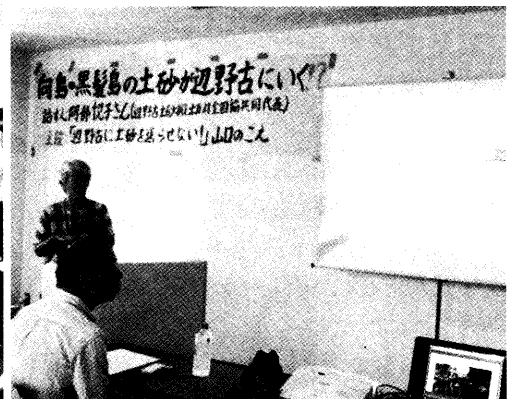 "向島・黒髪島の土砂が辺野古にいく!?"
話す人 阿部悦子さん(辺野古土砂搬出反対全国協共同代表)
主催「辺野古に土砂を送らせない!」山口のこえ